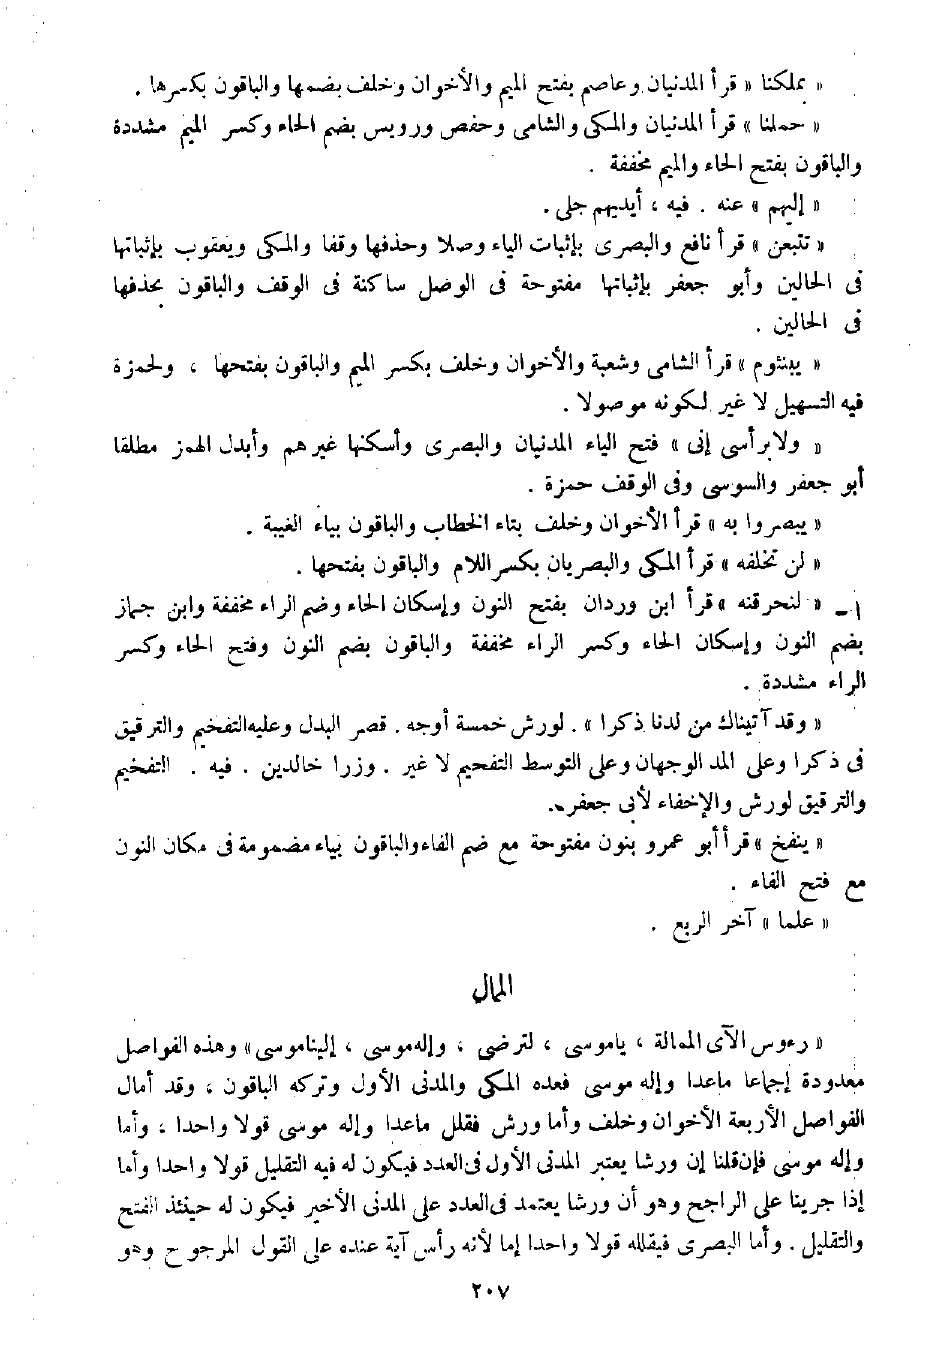 « بملكنا » قرأ المدنيان وعاصم بفتح الميم والأخوان وخلف بضمها والباقون بكسرها .
« حملنا » قرأ المدنيان والمكى والشامى وحفص ورويس بضم الحاء وكسر الميم مشددة
والباقون بفتح الحاء والميم مخففة .
« إليهم » عنه . فيه ، أيديهم جلى .
« تتبعن » قرأ نافع والبصرى بإثبات الياء وصلا وحذفها وقفا والمكى ويعقوب بإثباتها
فى الحالين وأبو جعفر بإثباتها مفتوحة فى الوصل ساكنة فى الوقف والباقون بحذفها
فى الحالين .
« يبنئوم » قرأ الشامى وشعبة والأخوان وخلف بكسر الميم والباقون بفتحها ، ولحمزة
فيه التسهيل لا غير لكونه موصولا .
« ولا برأسى إنى » فتح الياء المدنيان والبصرى وأسكنها غيرهم وأبدل الهمز مطلقا
أبو جعفر والسوسى وفى الوقف حمزة .
« يبصروا به » قرأ الأخوان وخلف بتاء الخطاب والباقون بياء الغيبة .
« لن تخلفه » قرأ المكى والبصريان بكسر اللام والباقون بفتحها .
« لنحرقنه » قرأ ابن وردان بفتح النون وإسكان الحاء وضم الراء مخففة وابن جماز
بضم النون وإسكان الحاء وكسر الراء مخففة والباقون بضم النون وفتح الحاء وكسر
الراء مشددة .
« وقد آتيناك من لدنا ذكرا » . لورش خمسة أوجه . قصر البدل وعليه التفخيم والترقيق
فى ذكرا وعلى المد الوجهان وعلى التوسط التفخيم لا غير . وزرا خالدين . فيه . التفخيم
والترقيق لورش والإخفاء لأبى جعفر .
« ينفخ » قرأ أبو عمرو بنون مفتوحة مع ضم الفاء والباقون بياء مضمومة فى مكان النون
مع فتح الفاء .
« علما » آخر الربع .
الممال
« رءوس الآى الممالة ، ياموسى ، لترضى ، وإله موسى ، إلينا موسى » وهذه الفواصل
معدودة إجماعا ماعدا وإله موسى فعده المكى والمدنى الأول وتركه الباقون ، وقد أمال
الفواصل الأربعة الأخوان وخلف وأما ورش فقلل ماعدا وإله موسى قولا واحدا ، وأما
وإله موسى فإن قلنا إن ورشا يعتبر المدنى الأول فى العدد فيكون له فيه التقليل قولا واحدا وأما
إذا جرينا على الراجح وهو أن ورشا يعتمد فى العدد على المدنى الأخير فيكون له حينئذ الفتح
والتقليل . وأما البصرى فيقلله قولا واحدا إما لأنه رأس آية عنده على القول المرجوح وهو
٢٠٧